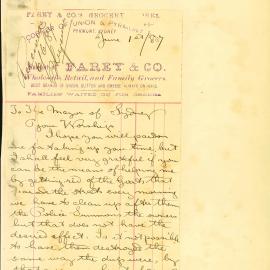 FAREY & CO'S GROCERY
UNION &
PYRMONT, SYDNEY
June 1st
FAREY & CO.
Wholesale, Retail, and Family Grocers
BEST BRANDS OF BACON, BUTTER AND CHEESE ALWAYS ON HAND.
FAMILIES WAITED ON FOR ORDERS
To The Mayor of Sydney
Your Worship
I hope you will pardon
me for taking up your time, but
I shall feel very grateful if you
can be the means of helping me
by getting rid of the goats that
the streets every morning
we have to clean up after them
the Police Summons the owners
but that does not have the
desired effect. Is it not possible
to have them destroyed the
same way the dogs were, by